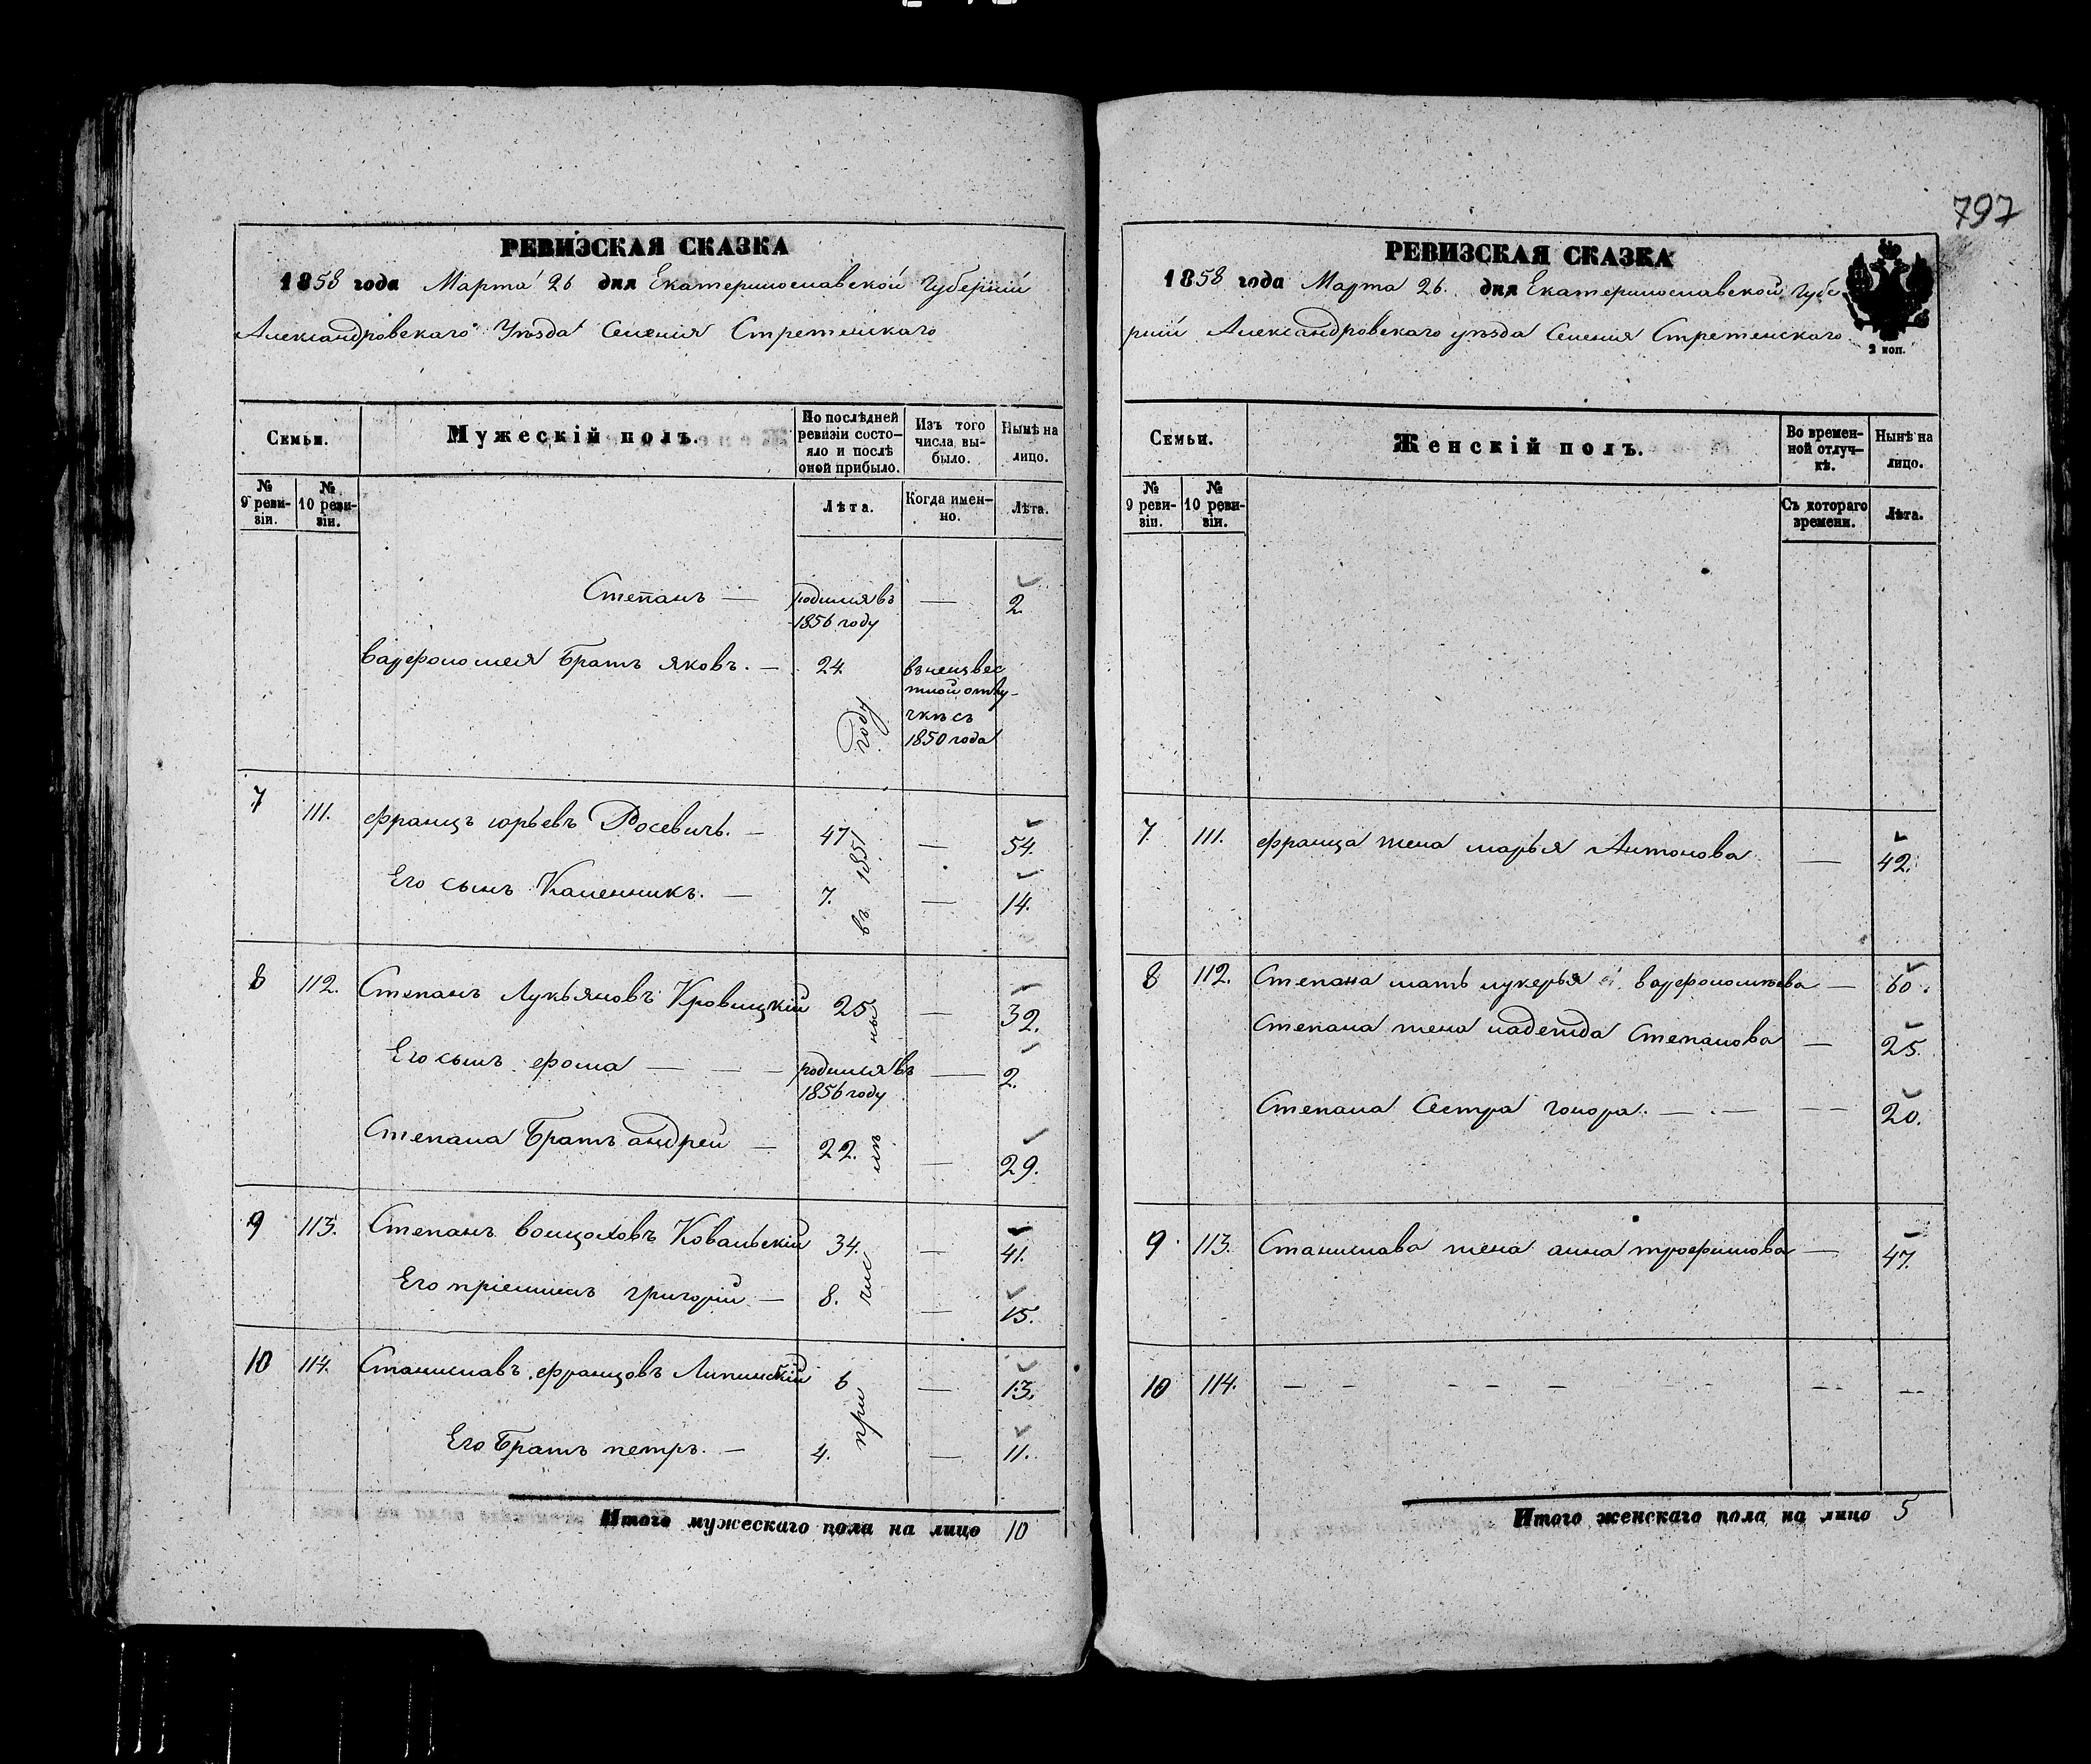 797
РЕВИЗСКАЯ СКАЗКА
1858 года Марта 26 дня Екатеринославской Губерніи
Александровскаго Уѣзда Селенія Стретенскаго
Семьи.
Мужескій полъ.
По послѣдней ревизіи состо-
яло и послѣ
оной прибыло.
Изъ того
числа вы-
было.
Нынѣ на
лицо.
№
9 реви-
зіи.
№
10 реви-
зіи.
Лѣта.
Когда имен-
но.
Лѣта.
Степанъ — родился въ 1856 году — 2.
варфоломея Братъ яковъ. — 24. въ неизвес
тной отлу-
чкѣ съ
1850 года
7 111. францъ юрьевъ Росевичъ. — 47 — 54.
Его сынъ — 7. — 14.
8 112. Степанъ Лукьяновъ Кровицкій 25 — 32.
Его сынъ фома — — — родился въ 1856 году — 2.
Степана Братъ андрей — 22. — 29.
9 113. Степанъ Ковальскій 34. — 41.
Его пріемышъ григорій — 8. — 15.
10 114. Станиславъ францовъ Липинскій 6 — 13.
Его Братъ петръ. — 4. — 11.
причисленны въ 1851 году
Итого мужескаго пола на лицо 10
РЕВИЗСКАЯ СКАЗКА
1858 года Марта 26. дня Екатеринославской Губе
рніи Александровскаго уѣзда Селенія Стретенскаго
2 коп.
Семьи.
Женскій полъ.
Во времен-
ной отлуч-
кѣ.
Нынѣ на
лицо.
№
9 реви-
зіи.
№
10 реви-
зіи.
Съ котораго
времени.
Лѣта.
7. 111. франца жена марья Антонова — 42.
8 112. Степана мать лукерья варфоломѣева — 60.
Степана жена надежда Степанова — 25.
Степана Сестра гонора. — — — — 20.
9. 113. Станислава жена анна трофимова — 47.
10 114. — — — — — — — —
Итого женскаго пола на лицо 5